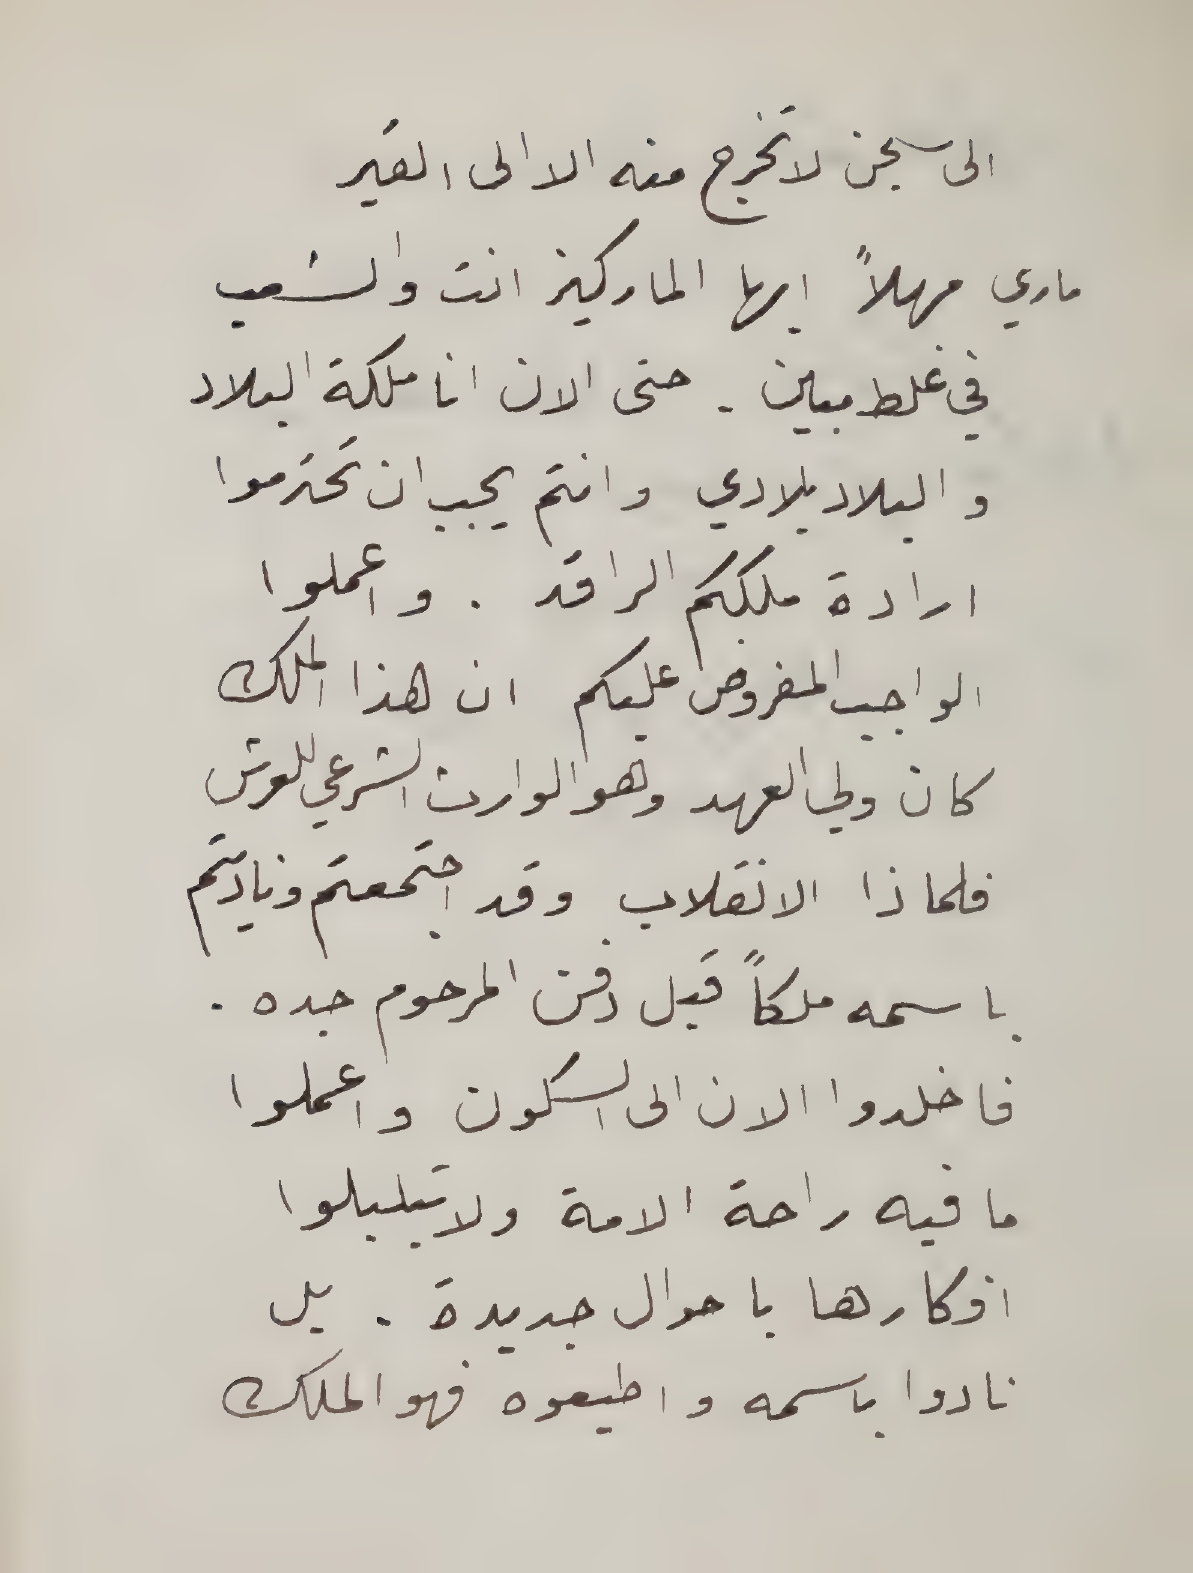 الى سجن لا تخرج منه الا الى القبر
ماري مهلاً ايها الماركيز انت والشعب
في غلط مبين . حتى الان انا ملكة البلاد
والبلاد بلادي وانتم يجب ان تحترموا
ارادة ملككم الراقد . واعملوا
الواجب المفروض عليكم ان هذا الملك
كان ولي العهد وهو الوارث الشرعي للعرش
فلماذا الانقلاب وقد اجتمعتم وناديتم
باسمه ملكاً قبل دفن المرحوم جده .
فاخلدوا الان الى السكون واعملوا
ما فيه راحة الامة ولا تبلبلوا
افكارها باحوال جديدة . بل
نادوا باسمه واطيعوه فهو الملك